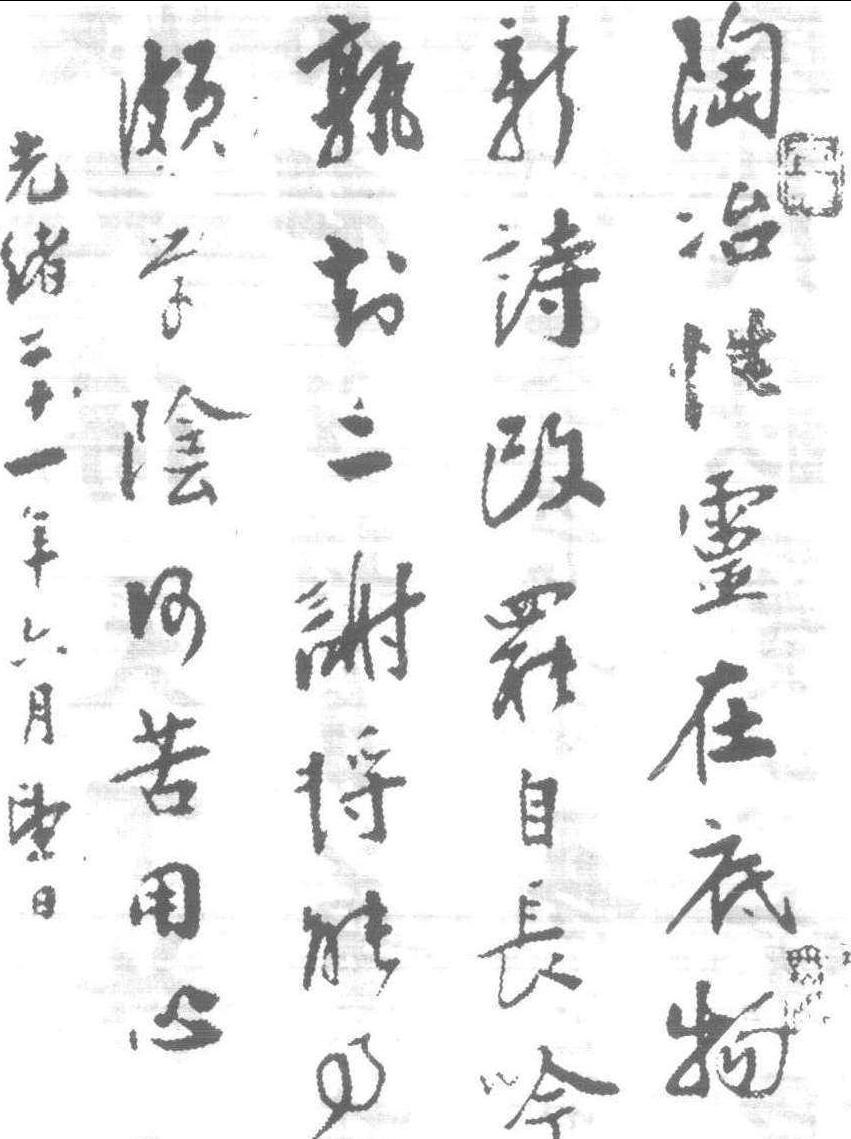 陶冶性靈在底物
新詩改罷自長吟
孰知二謝將能事
頗学陰何苦用心
光緒二十一年六月日